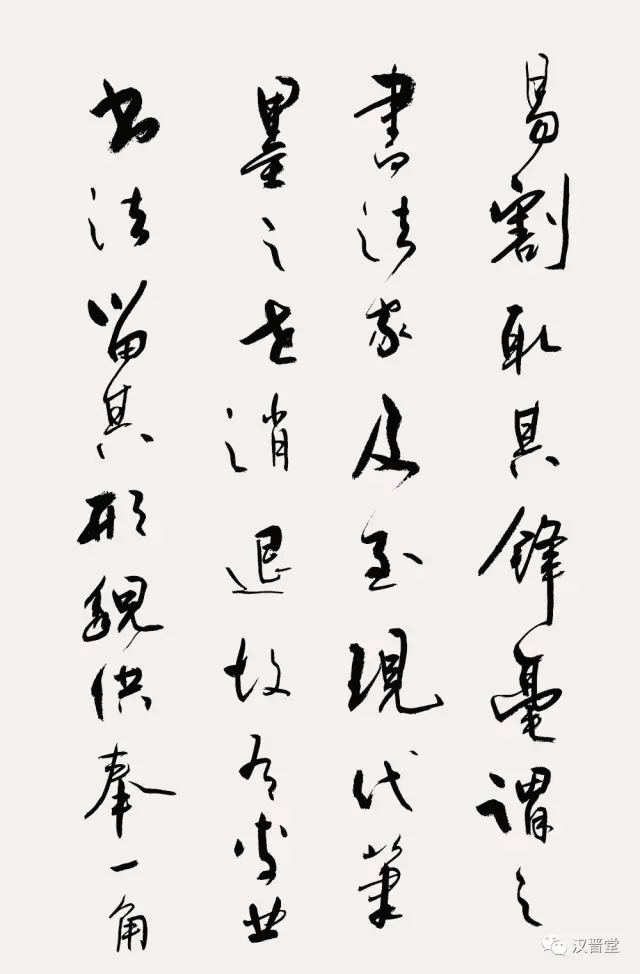 易割取其鋒毫謂之
書法家及至現代筆
墨之世消退故有專业
书法留其形貌供奉一角
汉晋堂